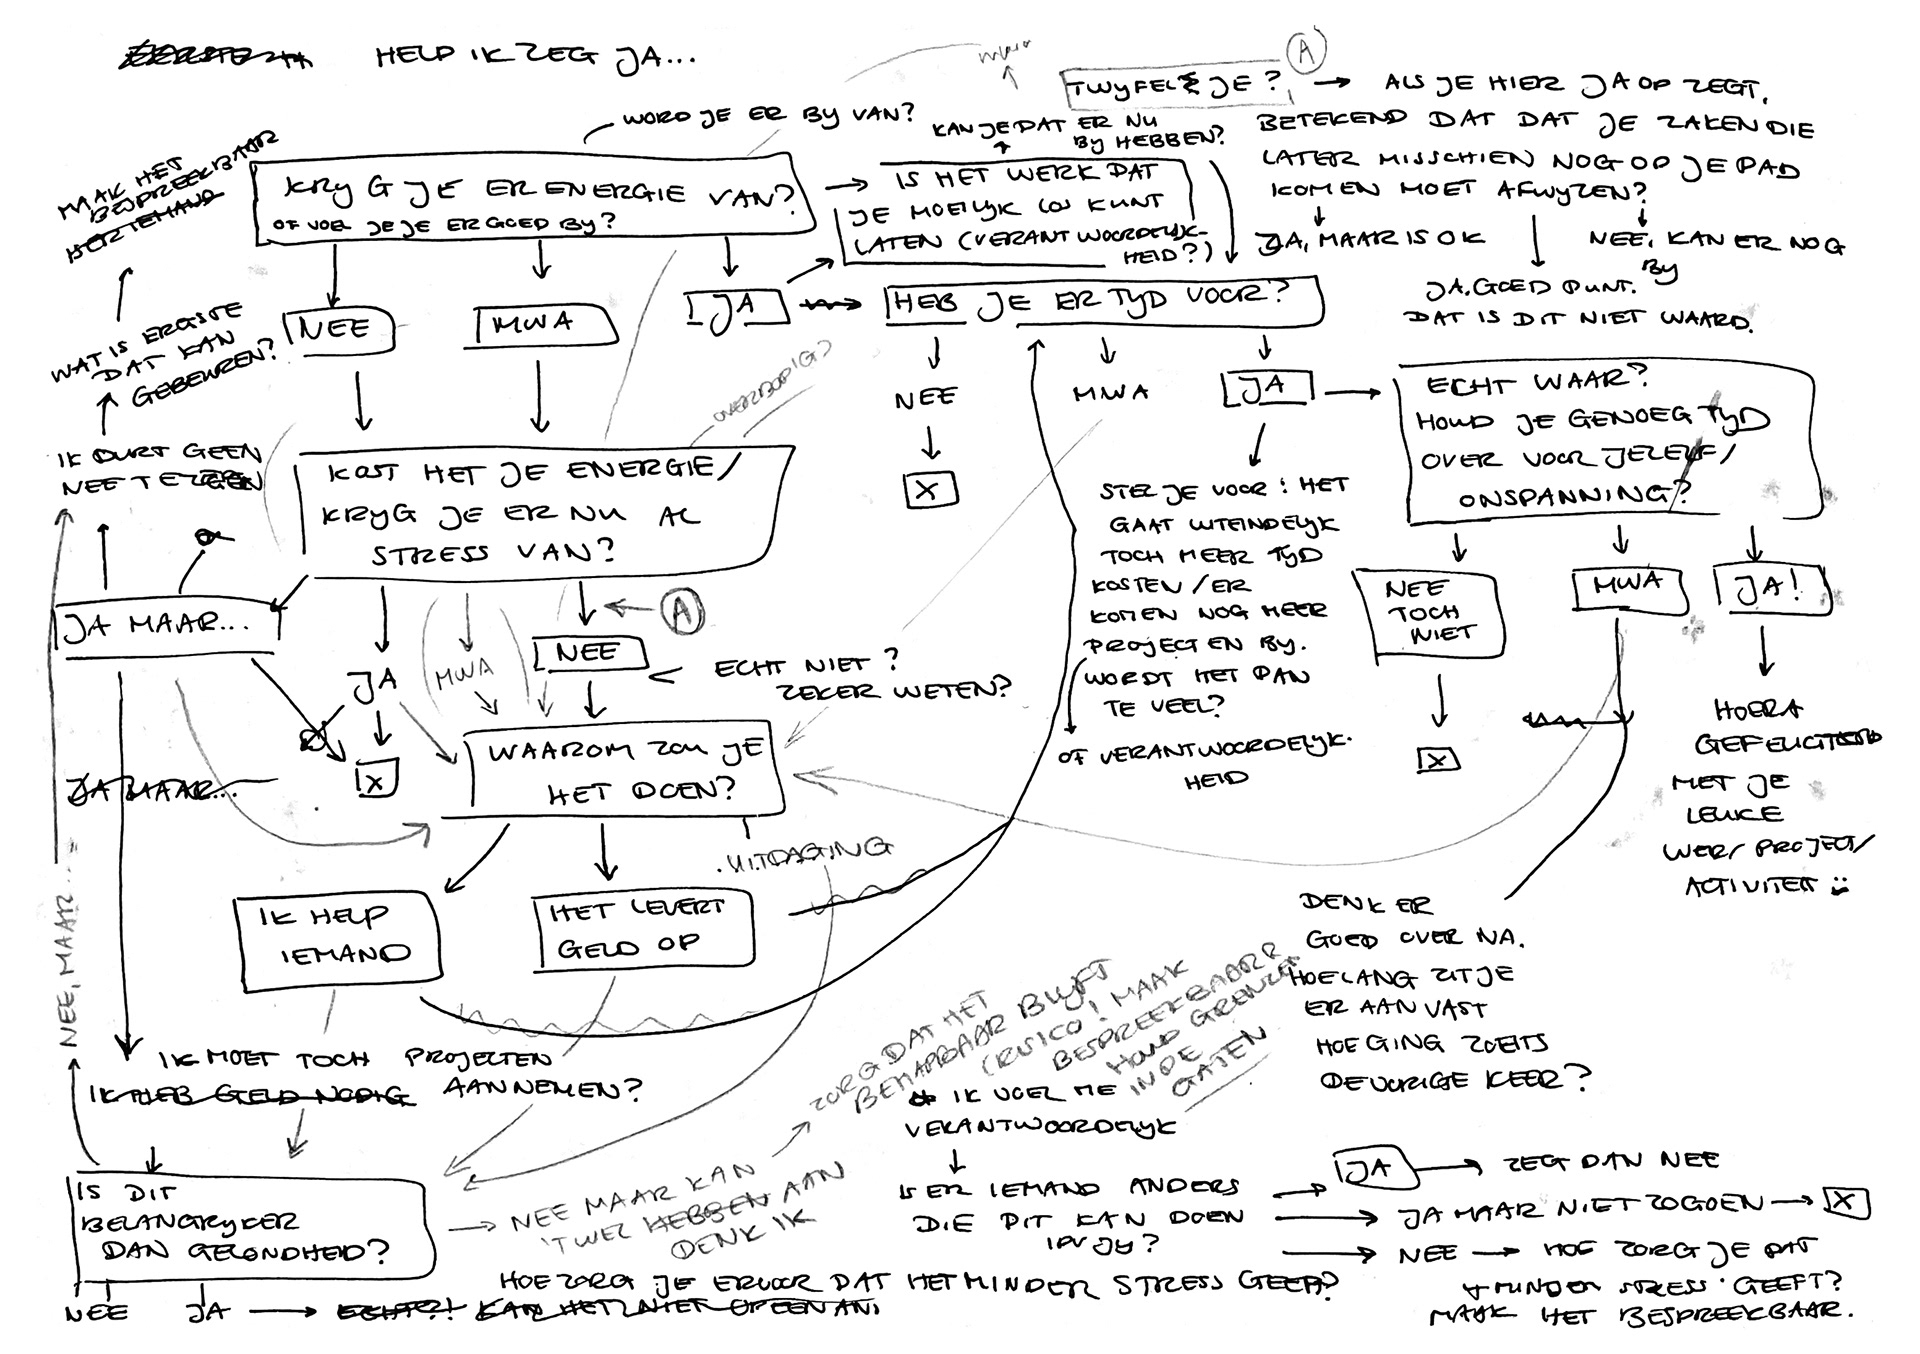 HELP IK ZEG JA...
A
TWYFEL JE?
ALS JE HIER JA OP ZEGT,
BETEKEND DAT DAT JE ZAKEN DIE
LATER MISSCHIEN NOG OP JE PAD
KOMEN MOET AFWYZEN?
JA, MAAR IS OK
NEE, KAN ER NOG
BY
JA, GOED PUNT.
DAT IS DIT NIET WAARD.
WORD JE ER BY VAN?
KAN JE DAT ER NU
BY HEBBEN?
MAAK HET
BESPREEKBAAR
KRYG JE ER ENERGIE VAN?
OF VOEL JE JE ER GOED BY?
IS HET WERK DAT
JE MOEILYK LOS KUNT
LATEN (VERANTWOORDELYK-
HEID?)
NEE
MWA
JA
HEB JE ER TYD VOOR?
NEE
X
MWA
JA
WAT IS ERGSTE
DAT KAN
GEBEUREN?
OVERBODIG?
ECHT WAAR?
HOUD JE GENOEG TYD
OVER VOOR JEZELF/
ONSPANNING?
IK DURF GEEN
NEE TE ZEGGEN
KOST HET JE ENERGIE/
KRYG JE ER NU AL
STRESS VAN?
STEL JE VOOR: HET
GAAT UITEINDELYK
TOCH MEER TYD
KOSTEN/ER
KOMEN NOG MEER
PROJECTEN BY.
WORDT HET DAN
TE VEEL?
OF VERANTWOORDELYK.
HEID
NEE
TOCH
NIET
X
MWA
JA!
HOERA
GEFELICITEERD
MET JE
LEUKE
WERK/PROJECT/
ACTIVITEIT
JA MAAR...
JA
MWA
A
NEE
ECHT NIET?
ZEKER WETEN?
X
WAAROM ZOU JE
HET DOEN?
JA MAAR...
UITDAGING
IK HELP
IEMAND
HET LEVERT
GELD OP
NEE, MAAR...
DENK ER
GOED OVER NA.
HOELANG ZIT JE
ER AAN VAST
HOE GING ZOIETS
DE VORIGE KEER?
IK MOET TOCH PROJECTEN
AANNEMEN?
IK HEB GELD NODIG
ZORG DAT HET
BEHAPBAAR BLYFT
(RISICO! MAAK
BESPREEKBAAR
HOUD GRENZEN
IN DE
GATEN
IK VOEL ME
VERANTWOORDELYK
IS DIT
BELANGRYKER
DAN GEZONDHEID?
NEE MAAR KAN
'T WEL HEBBEN AAN
DENK IK
IS ER IEMAND ANDERS
DIE DIT KAN DOEN
IPV JY?
JA
ZEG DAN NEE
JA MAAR NIET ZO GOED
X
NEE
HOE ZORG JE DAT
MINDER STRESS GEEFT?
MAAK HET BESPREEKBAAR.
NEE
JA
HOE ZORG JE ERVOOR DAT HET MINDER STRESS GEEFT?
KAN HET NIET OP EEN AN